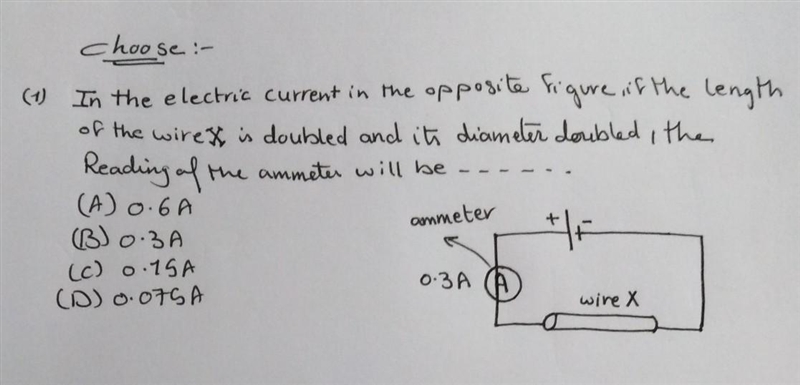 Choose :-
(1) In the electric current in the opposite Figure, if the length
of the wire X is doubled and its diameter doubled, the
Reading of the ammeter will be ------.
(A) 0.6A
(B) 0.3A
(C) 0.15A
(D) 0.075A
ammeter
+ -
0.3A A
wire X